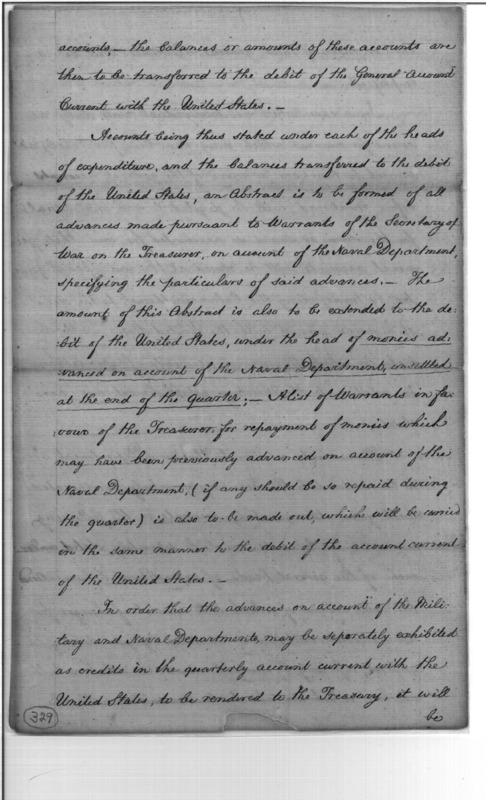 accounts,— the balances or amounts of these accounts are
then to be transferred to the debit of the General Account
Current with the United States.—
Accounts being thus stated under each of the heads
of expenditure, and the balances transferred to the debit
of the United States, an Abstract is to be formed of all
advances made pursuant to Warrants of the Secretary of
War on the Treasurer, on account of the Naval Department,
specifying the particulars of said advances.— The
amount of this Abstract is also to be extended to the de-
bit of the United States, under the head of monies ad-
vanced on account of the Naval Department, unsettled
at the end of the quarter;— A list of Warrants in fa-
vour of the Treasurer for repayment of monies which
may have been previously advanced on account of the
Naval Department, (if any should be so repaid during
the quarter) is also to be made out, which will be carried
in the same manner to the debit of the account current
of the United States.—
In order that the advances on account of the Mili-
tary and Naval Departments, may be seperately exhibited
as credits in the quarterly account current with the
United States, to be rendered to the Treasury, it will
be
329